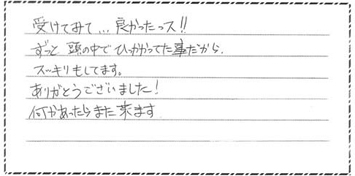 受けてみて…良かったっス!!
ずっと 頭の中でひっかかってた事だから、
スッキリもしてます。
ありがとうございました!
何かあったらまた来ます